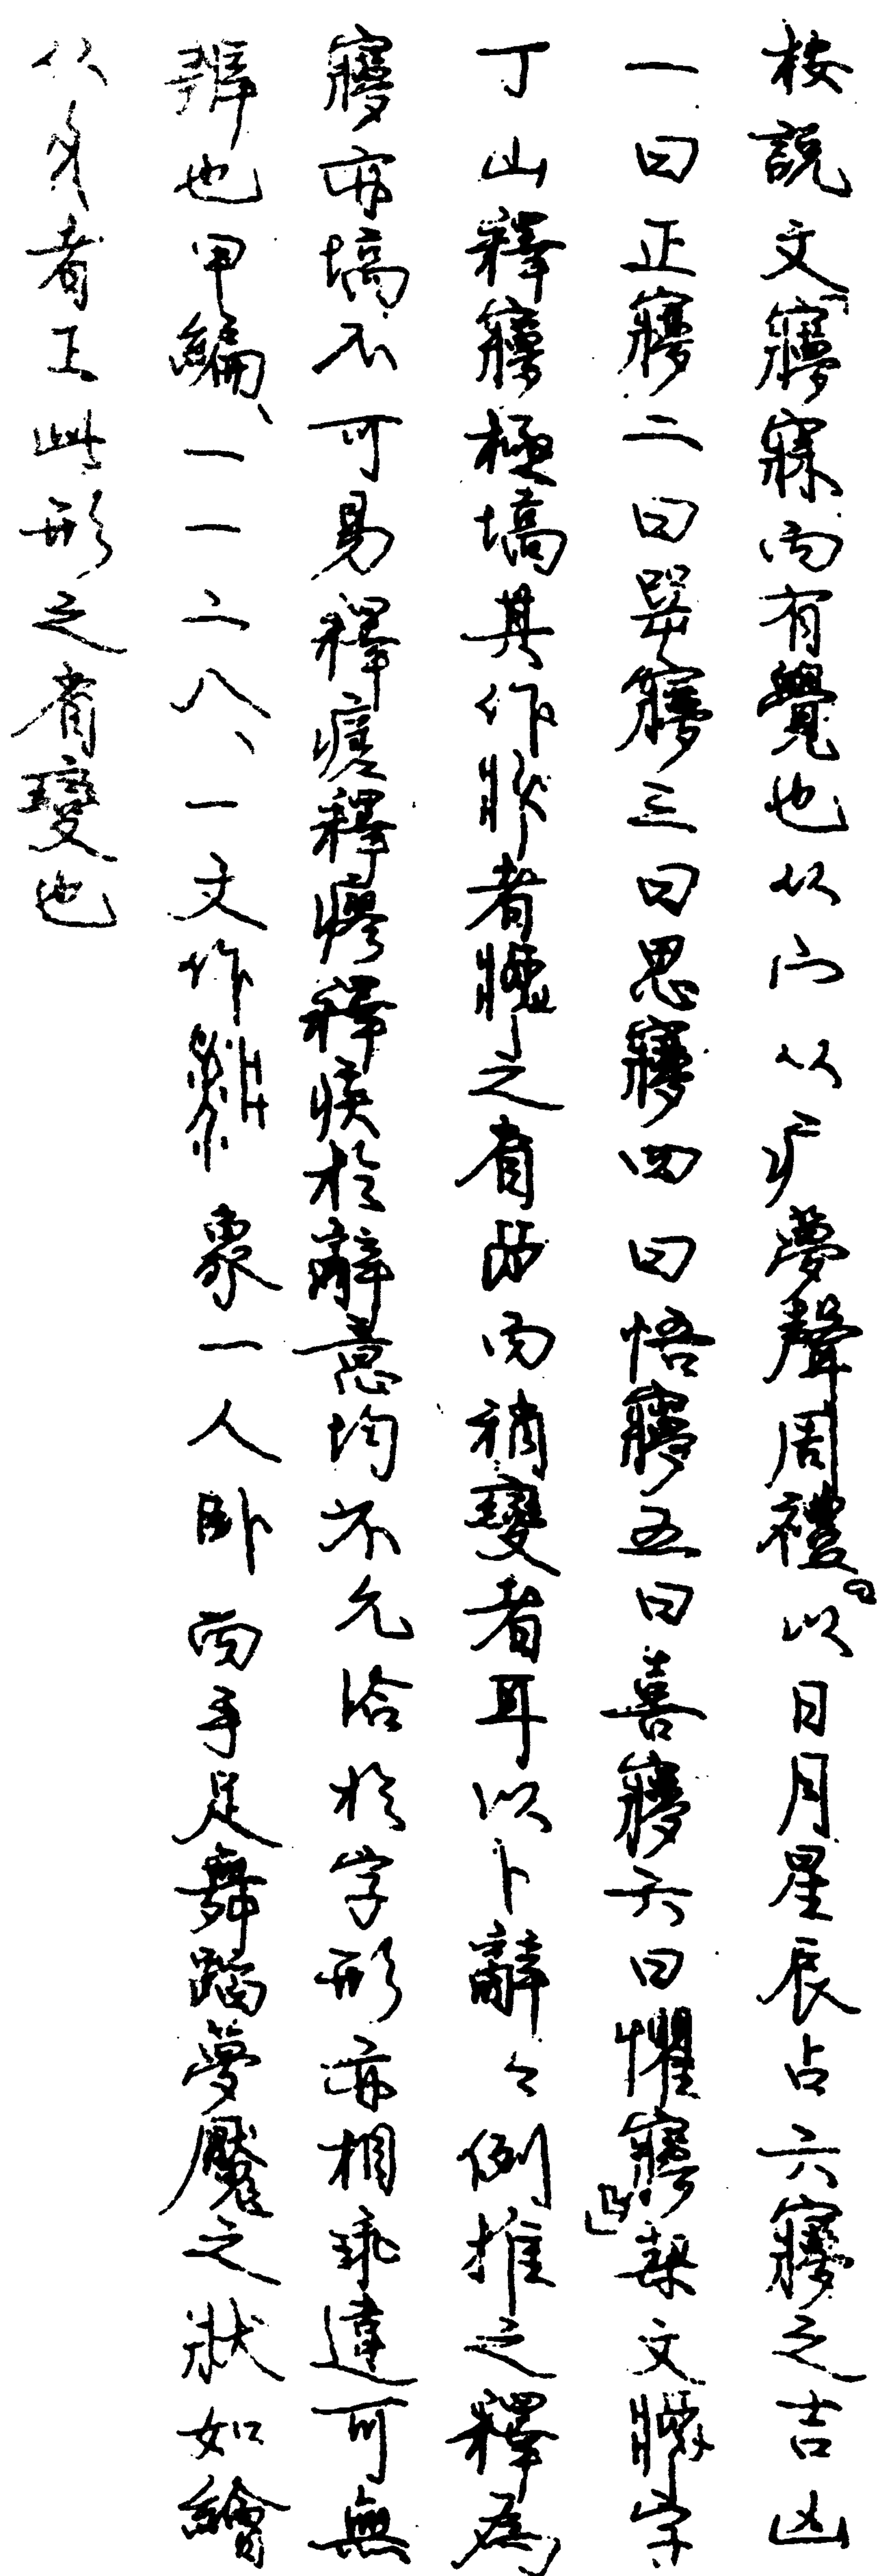 按說文「㝱寐而有覺也从宀从疒夢聲周禮『以日月星辰占六㝱之吉凶
一曰正㝱二曰㖾㝱三曰思㝱四曰悟㝱五曰喜㝱六曰懼㝱』」栔文字
丁山釋㝱極塙其作者之省而稍變者耳以卜辭之例推之釋為
㝱亦塙不可易釋瘧釋瘳釋疾於辭意均不允洽於字形亦相乖違可無
辨也甲編、一一二八、一文作象一人臥而手足舞蹈夢魘之狀如繪
从者王此形之省變也